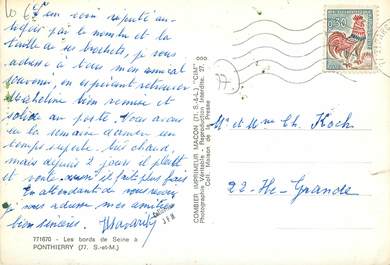 Lo 6
En un coin réputé au-
près par le nombre et la
taille de ses brochets, je vous
adresse à tous mon amical
souvenir, en espérant retrouver
Micheline bien remise et
solide au poste. Nous avons
eu la semaine dernière un
temps superbe très chaud,
mais depuis 2 jours il pleut
et vente, il fait plus frais
En attendant de vous revoir
je vous adresse mes amitiés
bien sincères.
771670 - Les bords de Seine à
PONTHIERRY (77. S.-et-M.)
COMBIER IMPRIMEUR MACON (71. S.-&-L.) "CIM"
Photographie Véritable - Reproduction Interdite. 27.
Coll. Maison de la Presse
77.
0,30
Mr et Mme Ch. Koch
22-Ile-Grande